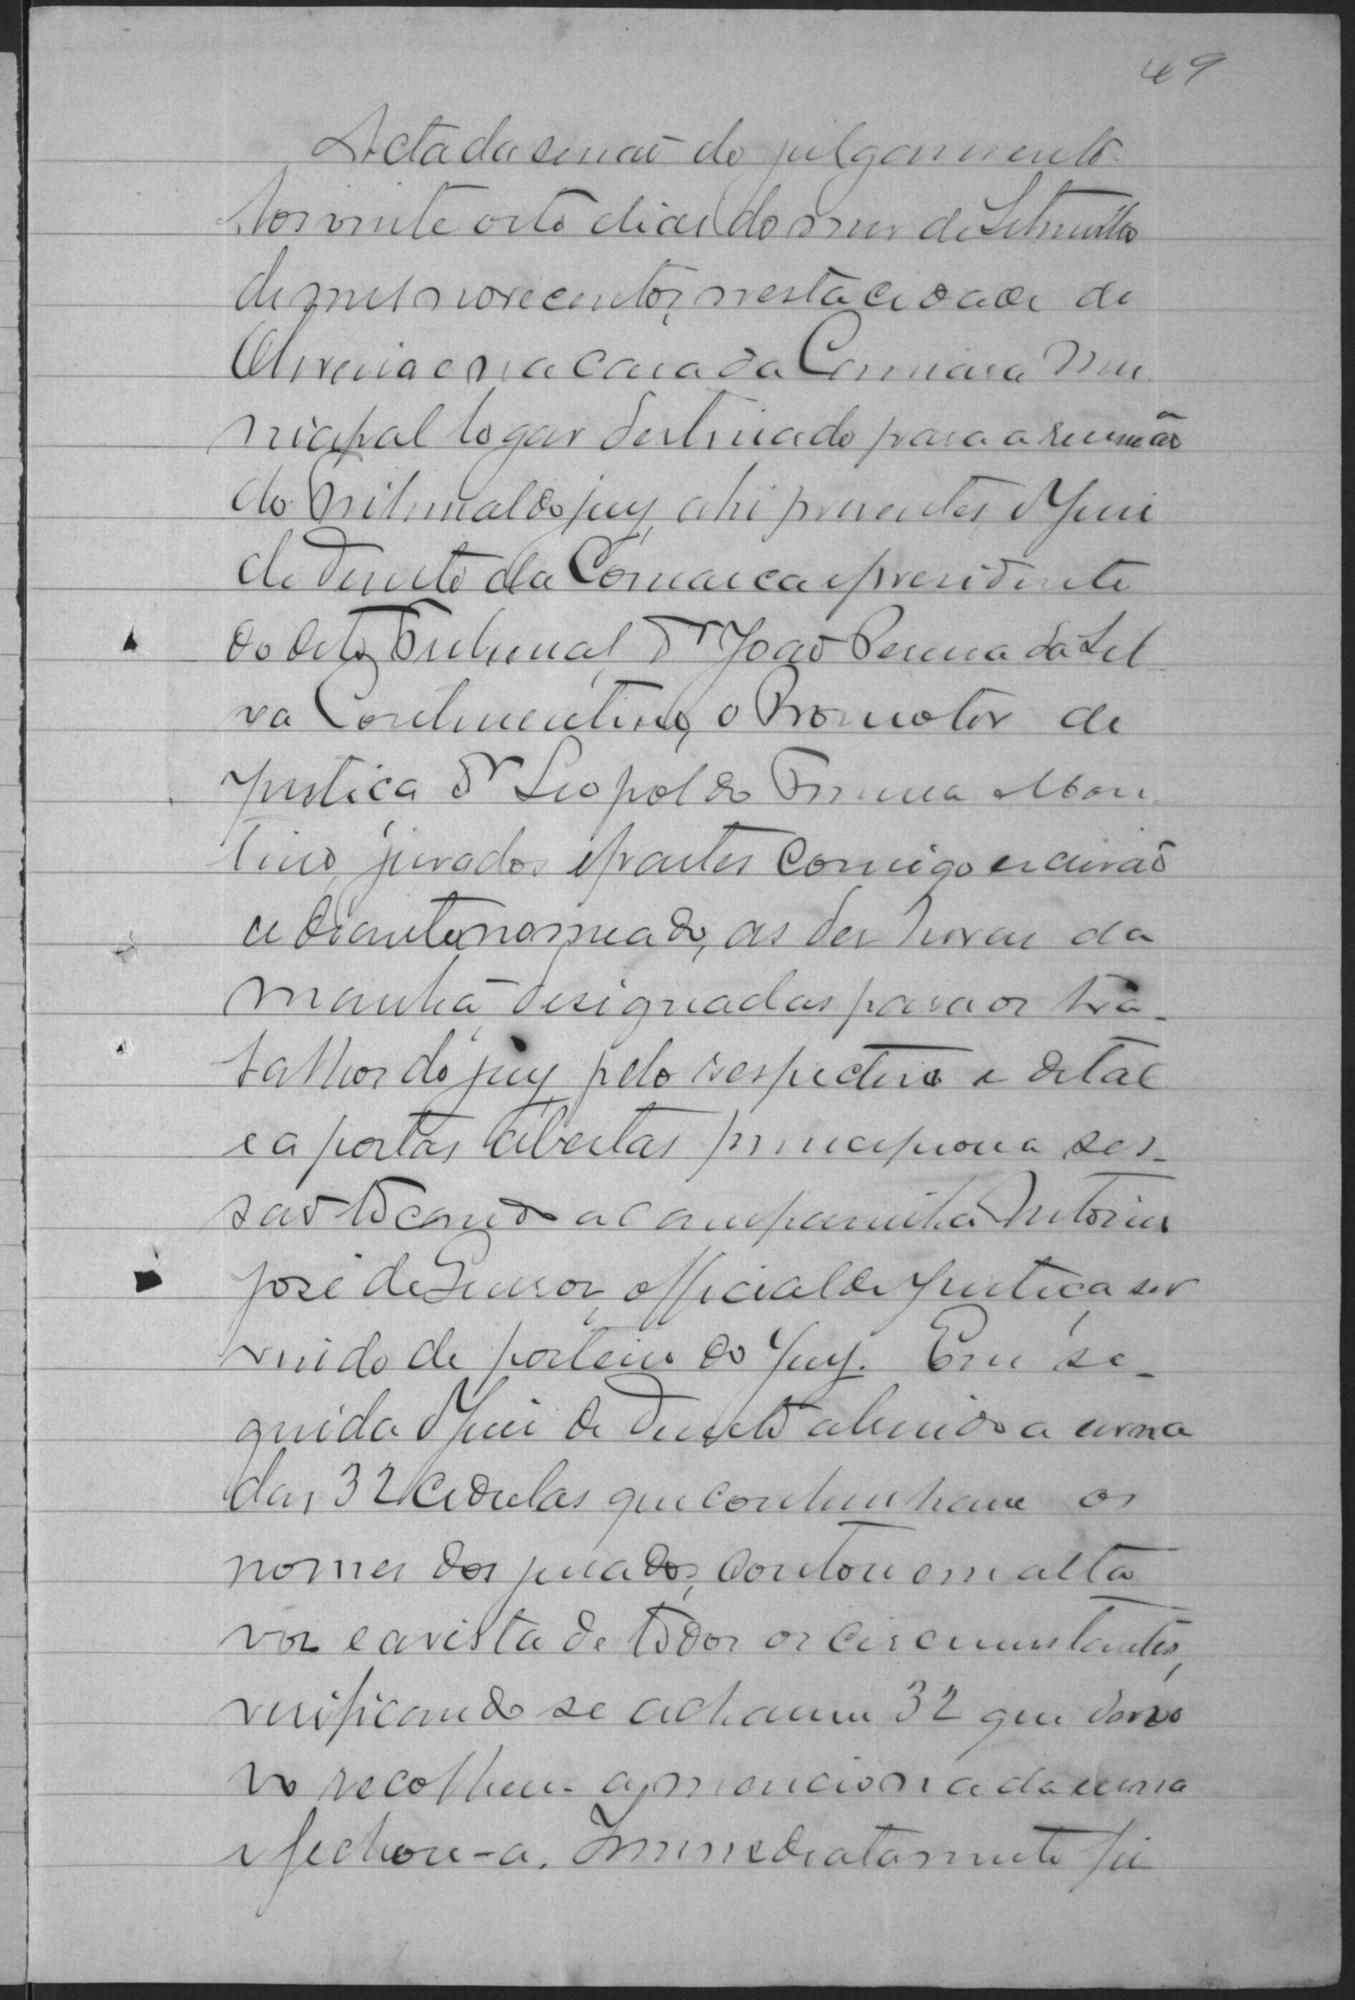 49
Acta da sessaõ do julgamento.
Aos vinte oito dias do mes de Setembro
de mil novecentos, nesta cidade de
Oliveira e na casa da Camara Mu
nicipal logar destinado para a reunião
do Tribunal do jury, ahi presentes, o Juiz
de Direito da Comarca e presidente
do dito Tribunal, Dr João Pereira da Sil
va Continentino, o Promotor de
Justiça Dr Leopoldo
jurados e partes comigo escrivaõ
adiante nomeado, as dez horas da
manhã designadas para os tra-
balhos do jury, pelo respectivo edital
e a portas abertas principiou a ses-
saõ tocando a campainha Antonio
José de Souza, official de Justiça ser
vindo de porteiro do Jury. Em se-
guida o Juiz de Direito abrindo a urna
das 32 cedulas que continham os
nomes dos jurados, contou em alta
voz e a vista de todos os circumstantes,
verificando se acharem 32 que de no
vo recolheu a mencionada urna
e fechou-a. Immediatamente fis